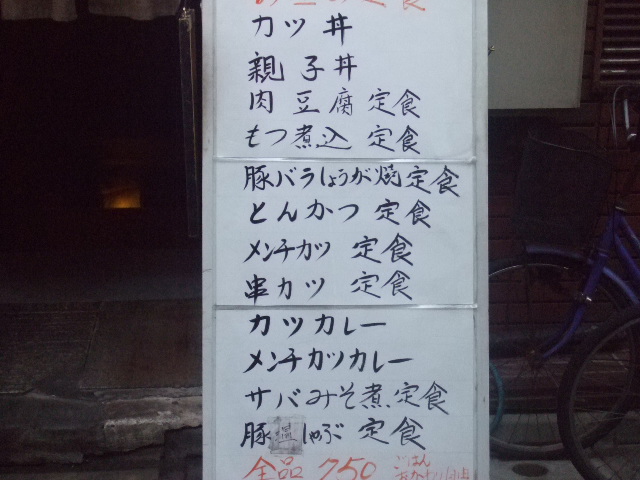 定食
カツ丼
親子丼
肉豆腐定食
もつ煮込定食
豚バラしょうが焼定食
とんかつ定食
メンチカツ定食
串カツ定食
カツカレー
メンチカツカレー
サバみそ煮定食
豚温しゃぶ定食
全品750 ごはん